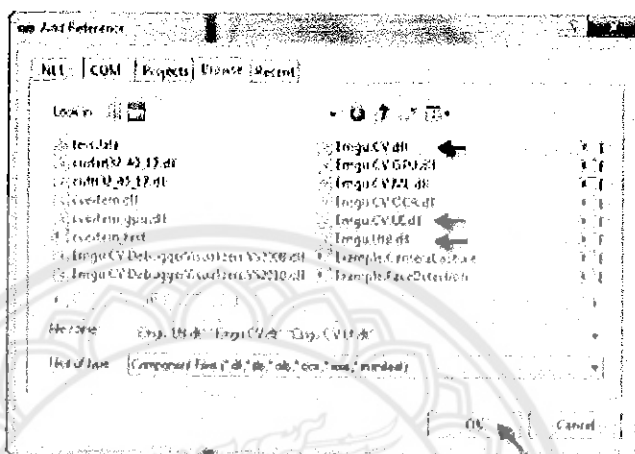 Add Reference
.NET COM Projects Browse Recent
Look in: bin
test.txt
cvextern.dll
cvextern_gpu.dll
cvextern_test
Emgu.CV.DebuggerVisualizers.VS2008.dll
Emgu.CV.DebuggerVisualizers.VS2010.dll
Emgu.CV.dll
Emgu.CV.GPU.dll
Emgu.CV.ML.dll
Emgu.CV.OCR.dll
Emgu.CV.UI.dll
Emgu.Util.dll
Example.CameraCapture
Example.FaceDetection
File name: "Emgu.Util.dll" "Emgu.CV.dll" "Emgu.CV.UI.dll"
Files of type: Component Files (*.dll;*.tlb;*.olb;*.ocx;*.exe;*.manifest)
OK Cancel